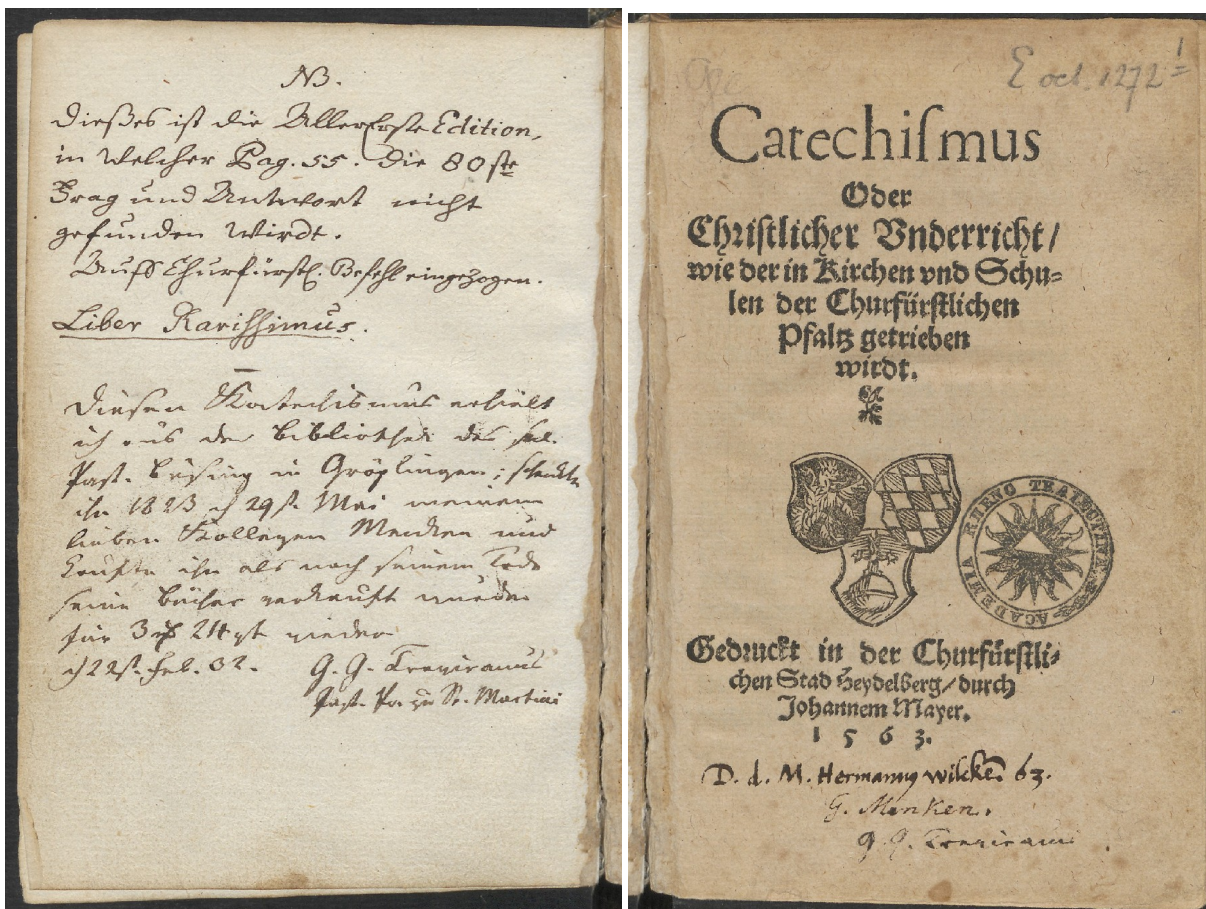 NB.
Dießes ist die Allererste Edition,
in welcher Pag. 55. die 80ste
Frag und Antwort nicht
gefunden wirdt.
Auff Churfürstl. Befehl eingezogen.
Liber Rarissimus.
Diesen Katechismus erhielt
ich aus der Bibliothek des sel.
Past. in Gröplingen; schenkte
ihn 1823 d 29st. Mai meinem
lieben Kollegen Menken und
kaufte ihn als nach seinem Tode
seine Bücher verkauft wurden
für 3 24 gt wieder
d 22st. Feb. 32. G. G. Treviranus
Past. Pr. zu St. Martini
E oct. 1272 1
Catechiſmus
Oder
Chriſtlicher Vnderricht/
wie der in Kirchen vnd Schu-
len der Churfürſtlichen
Pfaltz getrieben
wirdt.
ACADEMIA RHENO TRAIECTINA
Gedruckt in der Churfürſtli-
chen Stad Heydelberg/ durch
Johannem Mayer.
1 5 6 3.
D. d. M. Hermannus Wilcken. 63.
G. Menken.
G. G. Treviranus